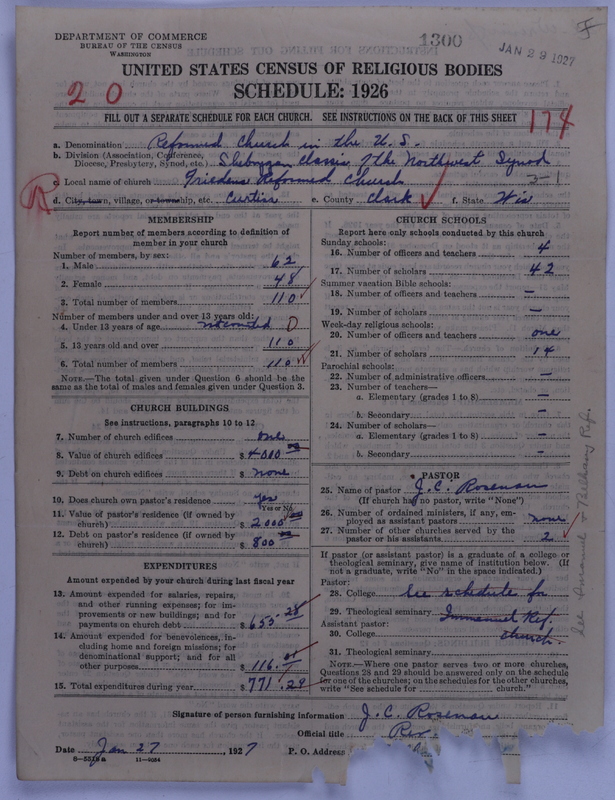 DEPARTMENT OF COMMERCE
BUREAU OF THE CENSUS
WASHINGTON
1300
JAN 29 1927
UNITED STATES CENSUS OF RELIGIOUS BODIES
SCHEDULE: 1926
2 0
FILL OUT A SEPARATE SCHEDULE FOR EACH CHURCH. SEE INSTRUCTIONS ON THE BACK OF THIS SHEET
174
a. Denomination Reformed Church in the U.S.
b. Division (Association, Conference, Diocese, Presbytery, Synod, etc.) Sheboygan Classis of the Northwest Synod
c. Local name of church Friedens Reformed Church
3-1
d. City, town, village, or township, etc. Curtiss e. County Clark f. State Wis
MEMBERSHIP
Report number of members according to definition of
member in your church
Number of members, by sex:
1. Male 62
2. Female 48
3. Total number of members 110
Number of members under and over 13 years old:
4. Under 13 years of age not counted 0
5. 13 years old and over 110
6. Total number of members 110
NOTE.—The total given under Question 6 should be the
same as the total of males and females given under Question 3.
CHURCH BUILDINGS
See instructions, paragraphs 10 to 12
7. Number of church edifices one
8. Value of church edifices $ 4000
9. Debt on church edifices $ none
10. Does church own pastor's residence yes
Yes or No
11. Value of pastor's residence (if owned by
church) $ 2000
12. Debt on pastor's residence (if owned by
church) $ 800
EXPENDITURES
Amount expended by your church during last fiscal year
13. Amount expended for salaries, repairs,
and other running expenses; for im-
provements or new buildings; and for
payments on church debt $ 655.28
14. Amount expended for benevolences, in-
cluding home and foreign missions; for
denominational support; and for all
other purposes $ 116.
15. Total expenditures during year $ 771.29
CHURCH SCHOOLS
Report here only schools conducted by this church
Sunday schools:
16. Number of officers and teachers 4
17. Number of scholars 42
Summer vacation Bible schools:
18. Number of officers and teachers —
19. Number of scholars —
Week-day religious schools:
20. Number of officers and teachers one
21. Number of scholars 14
Parochial schools:
22. Number of administrative officers —
23. Number of teachers—
a. Elementary (grades 1 to 8) —
b. Secondary —
24. Number of scholars—
a. Elementary (grades 1 to 8) —
b. Secondary —
PASTOR
25. Name of pastor J. C. Rosenau
(If church has no pastor, write "None")
26. Number of ordained ministers, if any, em-
ployed as assistant pastors none
27. Number of other churches served by the
pastor or his assistants 2
If pastor (or assistant pastor) is a graduate of a college or
theological seminary, give name of institution below. (If
not a graduate, write "No" in the space indicated.)
Pastor:
28. College See schedule for
29. Theological seminary Immanuel Ref.
Assistant pastor:
30. College church.
31. Theological seminary
NOTE.—Where one pastor serves two or more churches,
Questions 28 and 29 should be answered only on the schedule
for one of the churches; on the schedules for the other churches,
write "See schedule for church."
See Emanuel & Bethany Ref.
Signature of person furnishing information J. C. Rosenau
Official title Rev.
Date Jan 27, 1927 P. O. Address
6—5518a 11—9064